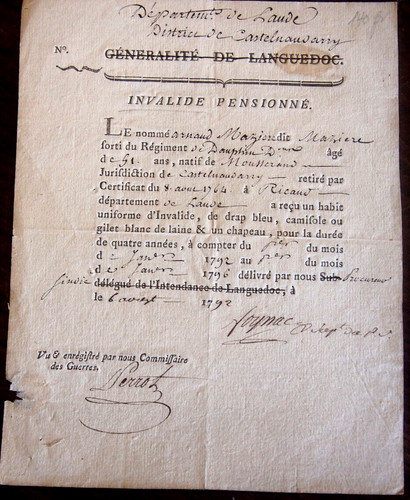 Departem.t de Laude
District de Castelnaudarry
N°. GÉNERALITÉ DE LANGUEDOC.
INVALIDE PENSIONNÉ.
LE nommé arnaud Maziere dit Maziere
sorti du Régiment de Dauphin D.on âgé
de 51 ans, natif de
Jurisdiction de Castelnaudarry retiré par
Certificat du 8 aout 1764 à Ricaud
département de Laude a reçu un habit
uniforme d'Invalide, de drap bleu, camisole ou
gilet blanc de laine & un chapeau, pour la durée
de quatre années, à compter du per du mois
de Janv. 1792 au per du mois
de Janv. 1796 délivré par nous Sub- Procureur
sindic délégué de l'Intendance de Languedoc, à
le 1792
Vu & enrégistré par nous Commissaire
des Guerres.
Perrot